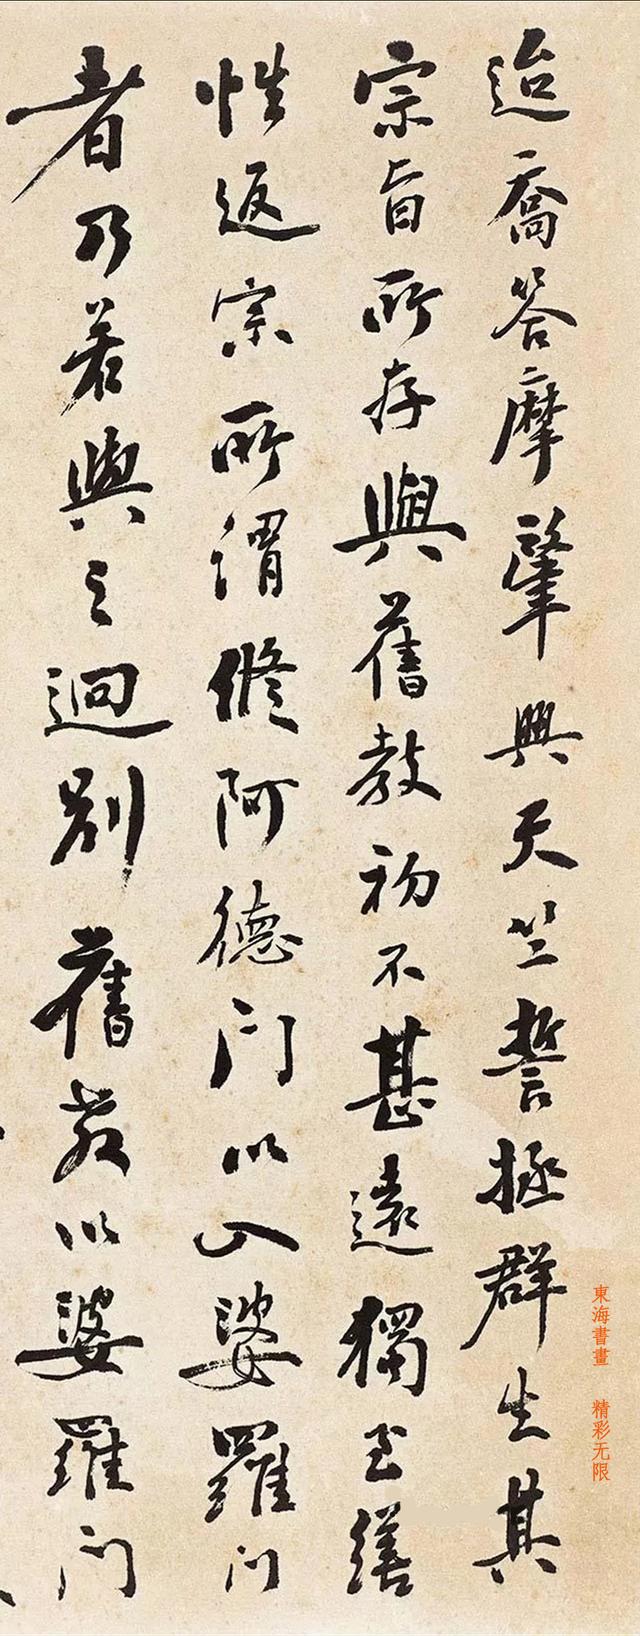 迨喬答摩肈興天竺誓拯群生其
宗旨所存與舊教初不甚遠獨至繕
性返宗所謂修阿德門以入婆羅門
者乃若與之迥别舊教以婆羅門
東海書畫 精彩无限